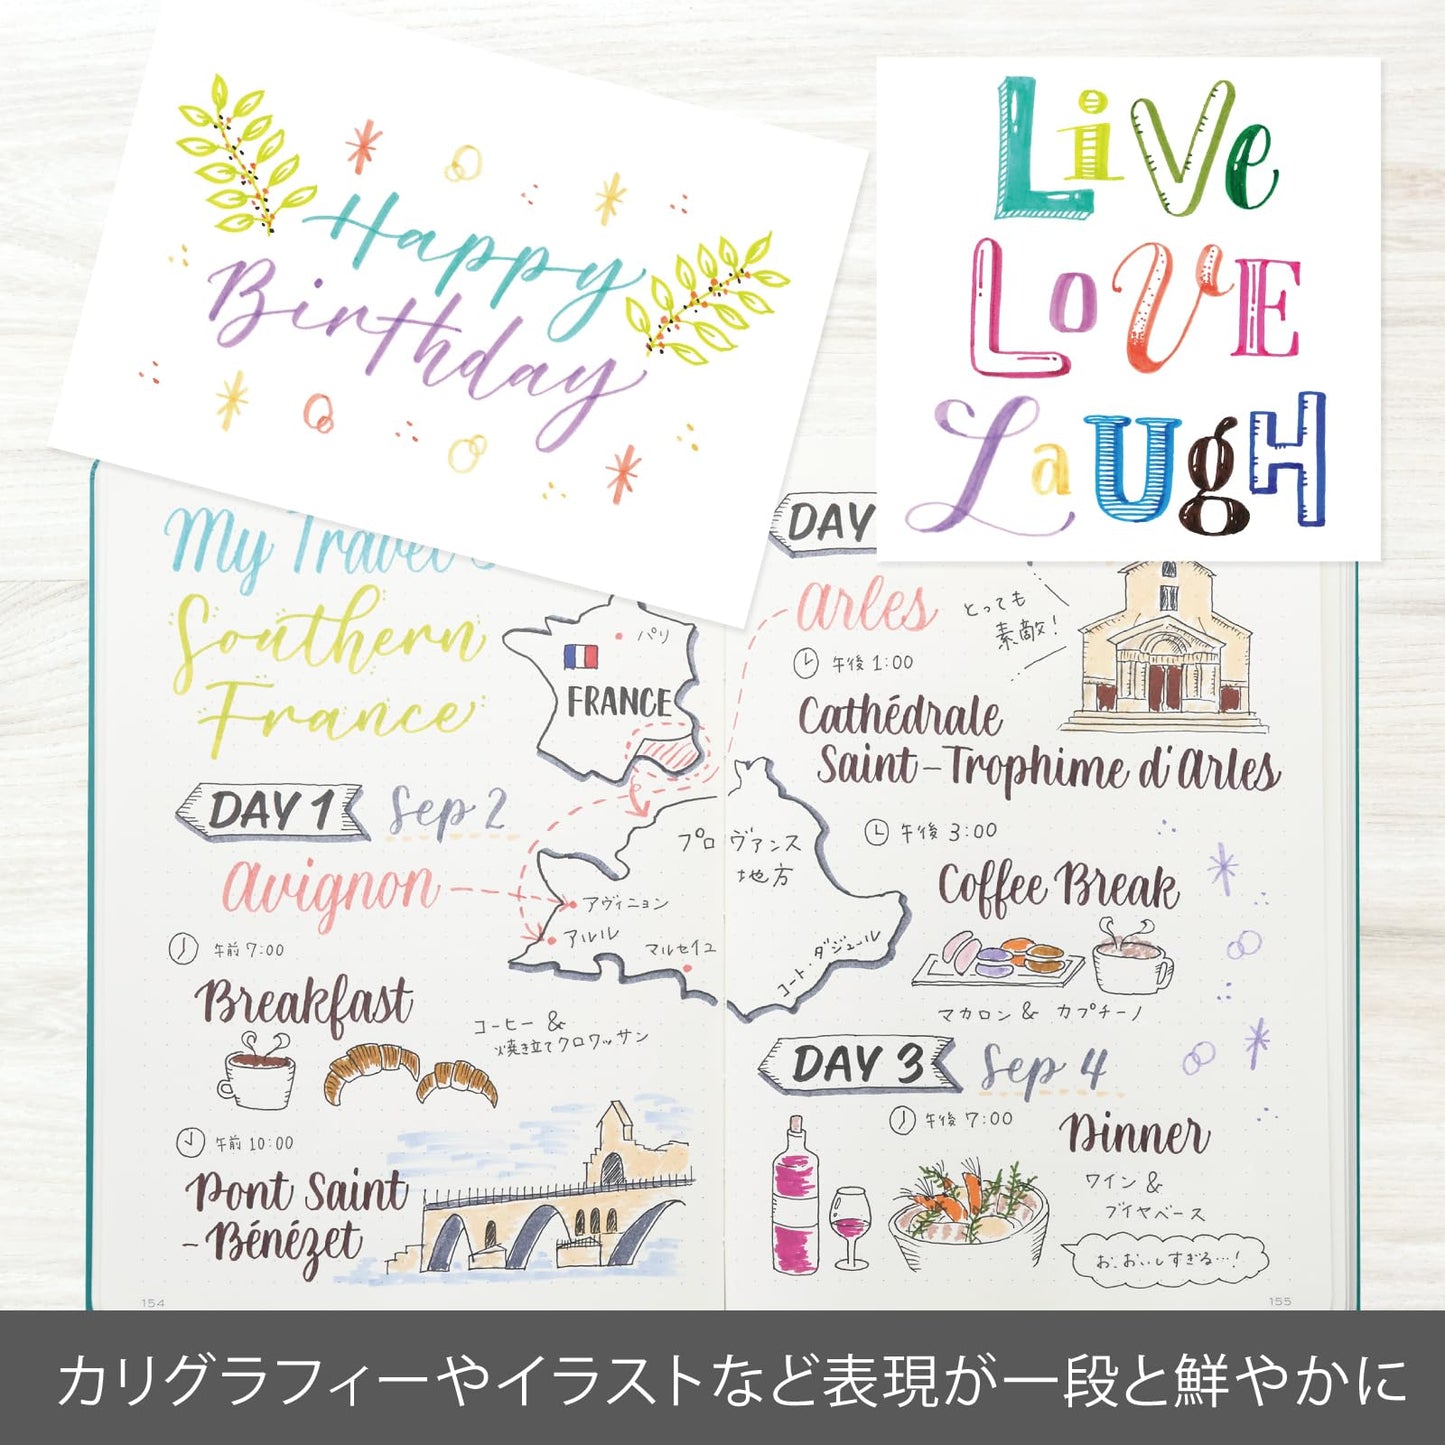 Happy
Birthday
Live
LoVE
LaugH
My Travel
Southern
France
パリ
FRANCE
DAY 1 Sep 2
avignon
午前 7:00
Breakfast
コーヒー &
焼き立てクロワッサン
午前 10:00
Pont Saint
-Bénézet
プロヴァンス
地方
アヴィニョン
アルル
マルセイユ
コート・ダジュール
154
DAY
arles
とっても
素敵!
午後 1:00
Cathédrale
Saint-Trophime d'arles
午後 3:00
Coffee Break
マカロン & カプチーノ
DAY 3 Sep 4
午後 7:00
Dinner
ワイン &
ブイヤベース
お、おいしすぎる…!
155
カリグラフィーやイラストなど表現が一段と鮮やかに